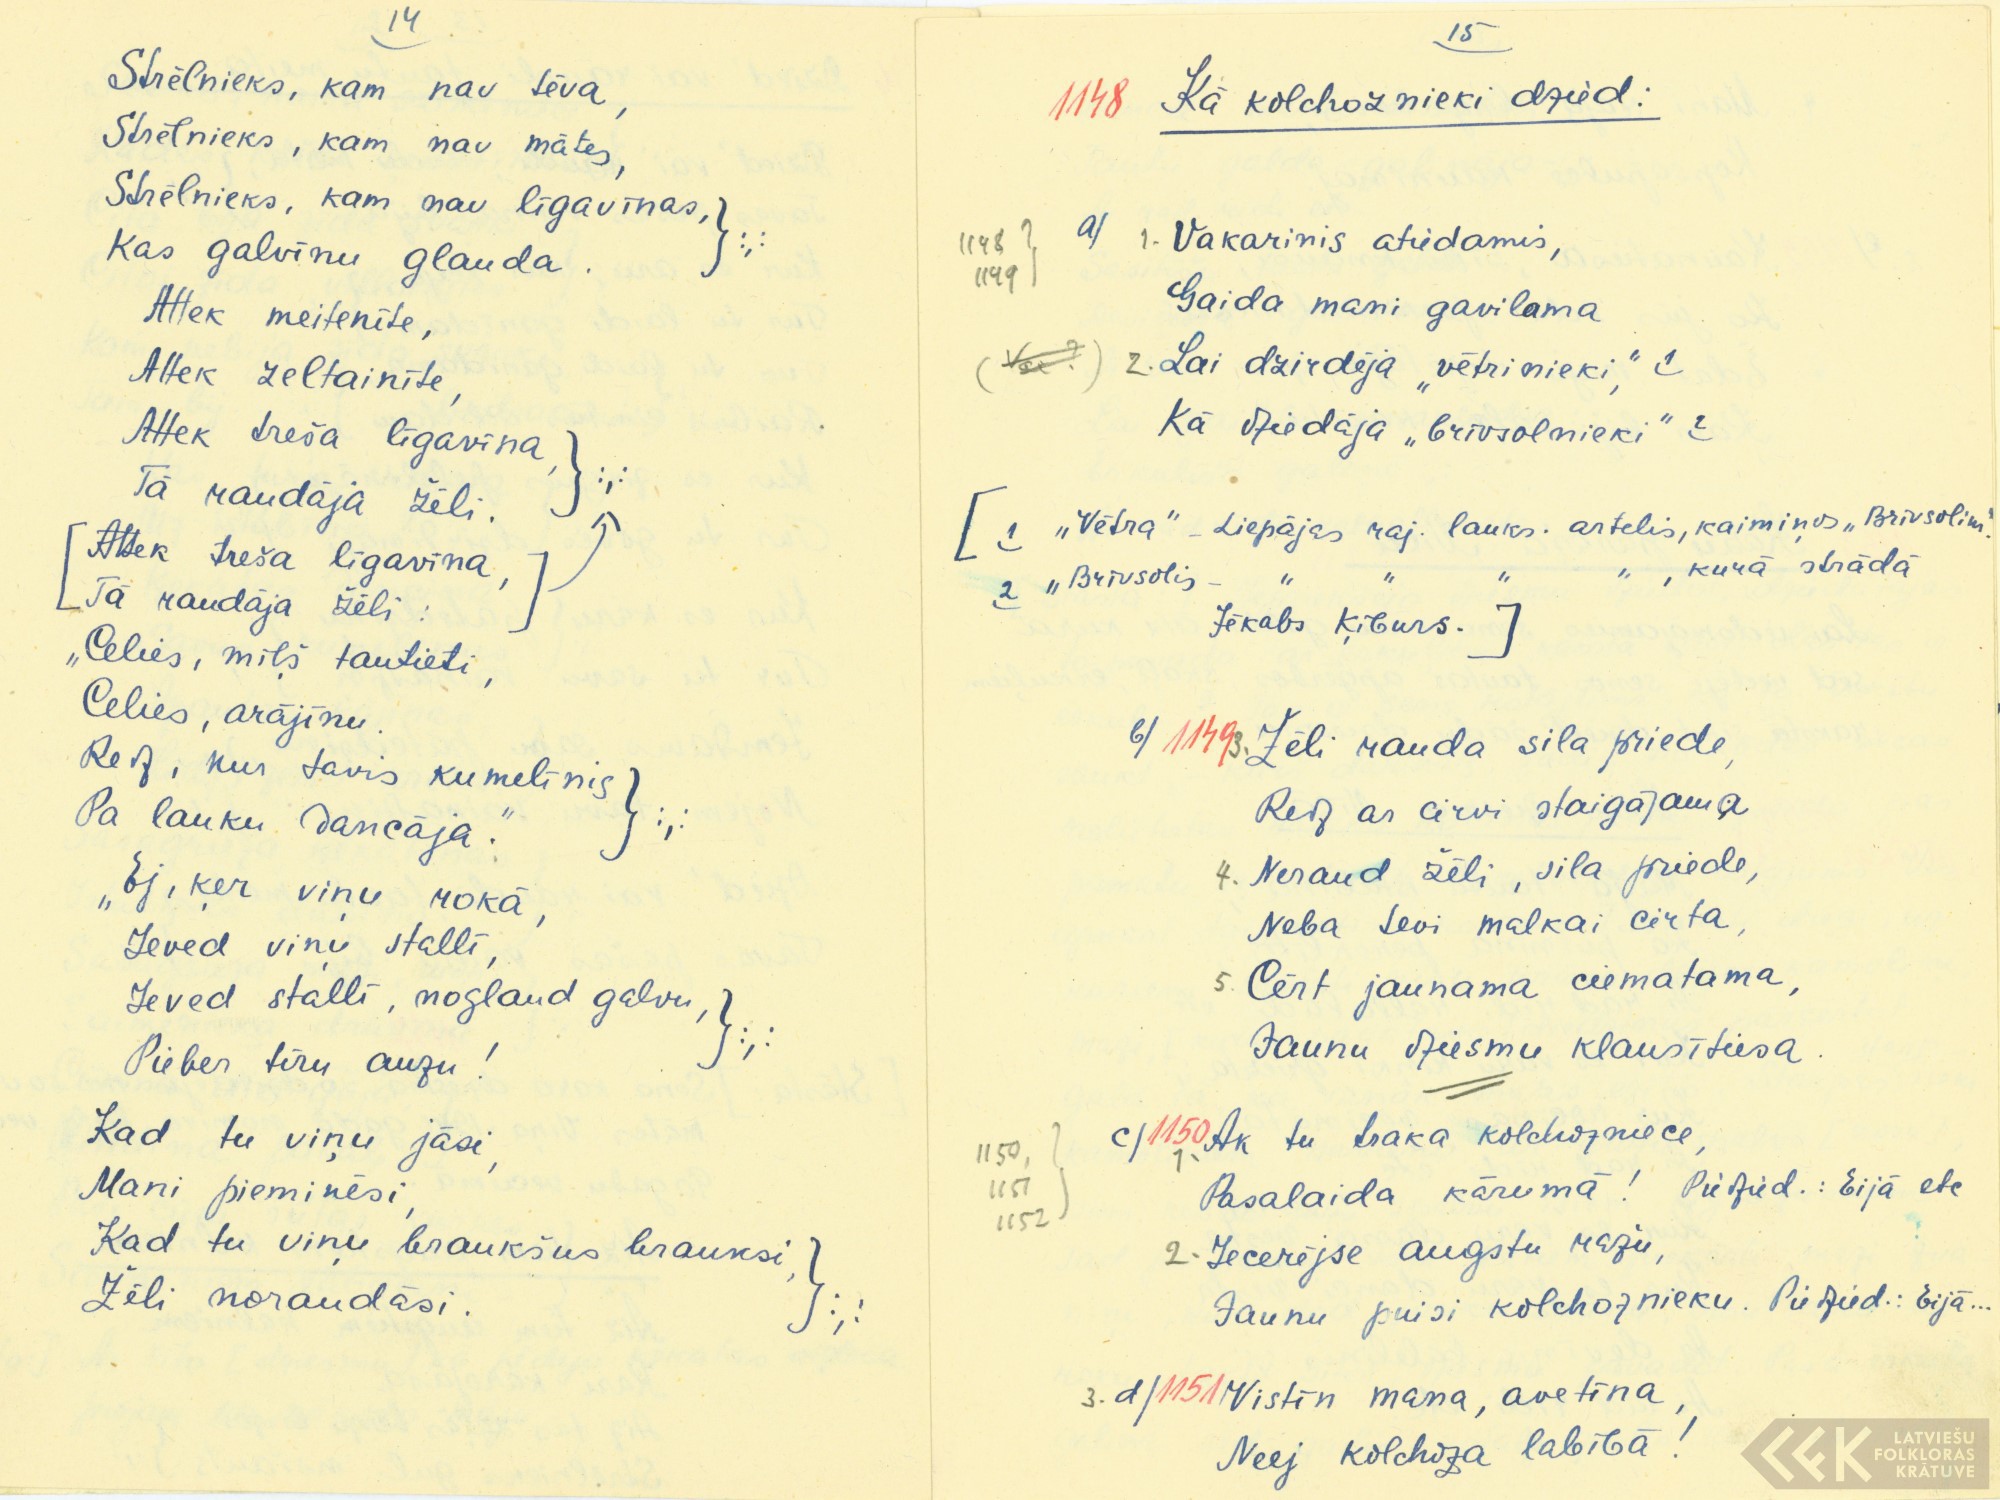 14
Strēlnieks, kam nav tēva,
Strēlnieks, kam nav mātes,
Strēlnieks, kam nav līgaviņas, } :,:
Kas galviņu glauda.
Attek meitenīte,
Attek zeltainīte,
Attek treša līgaviņa, } :,:
Tā raudāja žēli.
[Attek treša līgaviņa,
Tā raudāja žēli:]
„Celies, mīļš tautieti,
Celies, arājiņu.
Redz, kur tavis kumeliņis } :,:
Pa lauku dancāja.“
„Ej, ķer viņu rokā,
Ieved viņu stallī,
Ieved stallī, noglaud galvu, } :,:
Pieber tīru auzu!
Kad tu viņu jāsi,
Mani pieminēsi,
Kad tu viņu braukšus brauksi, } :,:
Žēli noraudāsi.
15
1148 Kā kolchoznieki dzied:
1148
1149 }
a) 1. Vakarinis atiedamis,
Gaida mani gavilama
2. Lai dzirdēja „vētrinieki,“ 1
Kā dziedāja „brīvsolnieki“ 2
[ 1 „Vētra“ - Liepājas raj. lauks. artelis, kaimiņos „Brīvsolim“.
2 „Brīvsolis - „ „ „ „ , kurā strādā
Jēkabs Ķiburs. ]
b) 1149 3. Žēli rauda sila priede,
Redz ar cirvi staigājama
4. Neraud žēli, sila priede,
Neba tevi malkai cirta,
5. Cērt jaunama ciematama,
Jaunu dziesmu klausītiesa.
1150,
1151
1152 }
c) 1150 1. Ak tu traka kolchozniece,
Pasalaida kārumā! Piedzied.: Eijā etc
2. Iecerējse augstu ražu,
Jaunu puisi kolchoznieku. Piedzied.: Eijā...
3. d) 1151 Vistiņ mana, avetiņa,
Neej kolchoza labībā!
LATVIEŠU
FOLKLORAS
KRĀTUVE